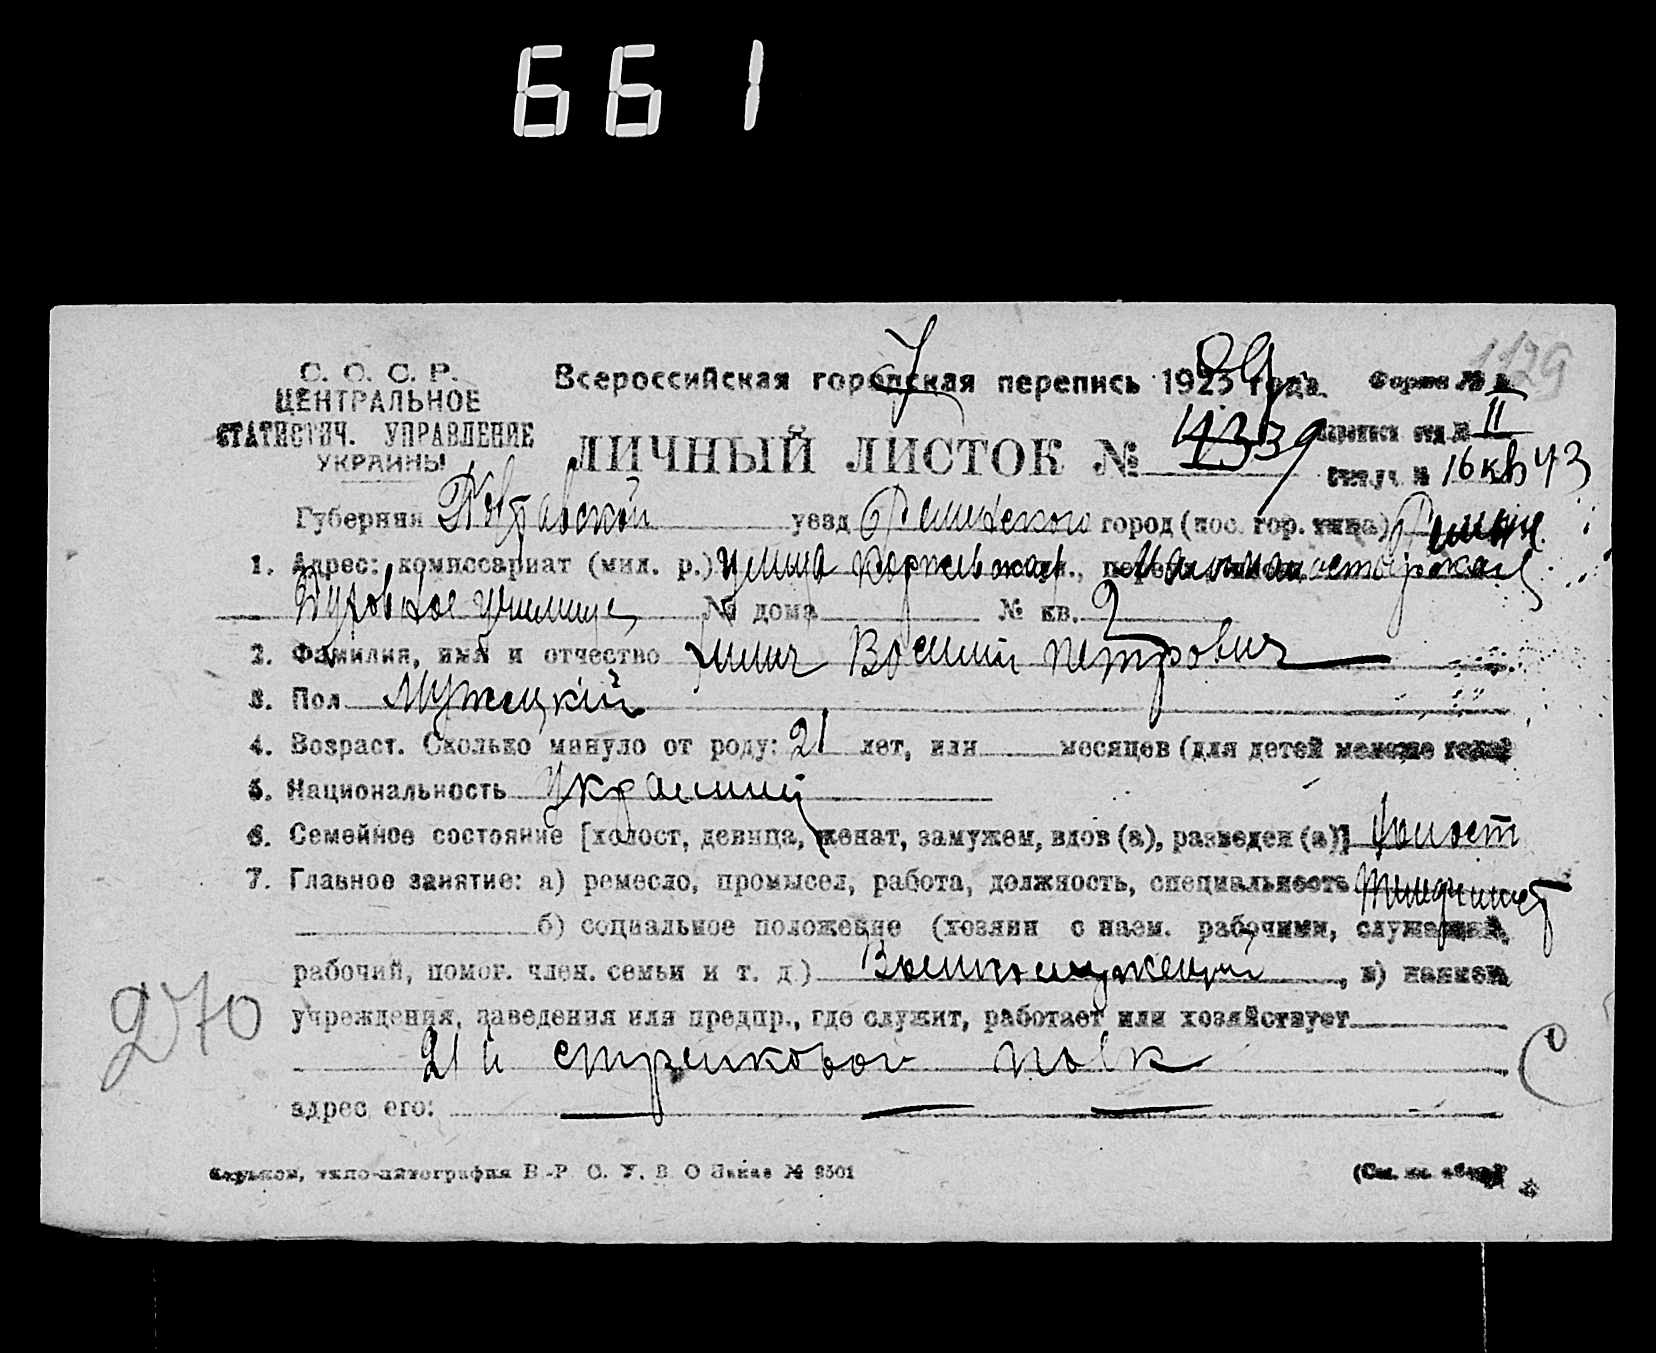 661
С. С. С. Р.
ЦЕНТРАЛЬНОЕ
СТАТИСТИЧ. УПРАВЛЕНИЕ
УКРАИНЫ
1129
Всероссийская городская перепись 1923 года. Форма №
ЛИЧНЫЙ ЛИСТОК № II
№ 16 кв 43
Губерния Полтавской уезд Роменского город (пос. гор. типа) Ромны
1. Адрес: комиссариат (мил. р.) улица
Духовное училище № дома № кв. 2
2. Фамилия, имя и отчество Василий Петрович
3. Пол Мужецкий
4. Возраст. Сколько минуло от роду: 21 лет, или месяцев (для детей моложе года)
5. Национальность Украинец
6. Семейное состояние [холост, девица, женат, замужем, вдов (а), разведен (а)] холост
7. Главное занятие: а) ремесло, промысел, работа, должность, специальность
б) социальное положение (хозяин с наем. рабочими, служащий,
рабочий, помог. член. семьи и т. д.) Военнослужещий, в) наимен.
270
учреждения, заведения или предпр., где служит, работает или хозяйствует
21 й стрелковой полк
С
адрес его:
Харьков, типо-литография В.-Р. С. У. В. О Заказ № 9501 (См. на обор.)